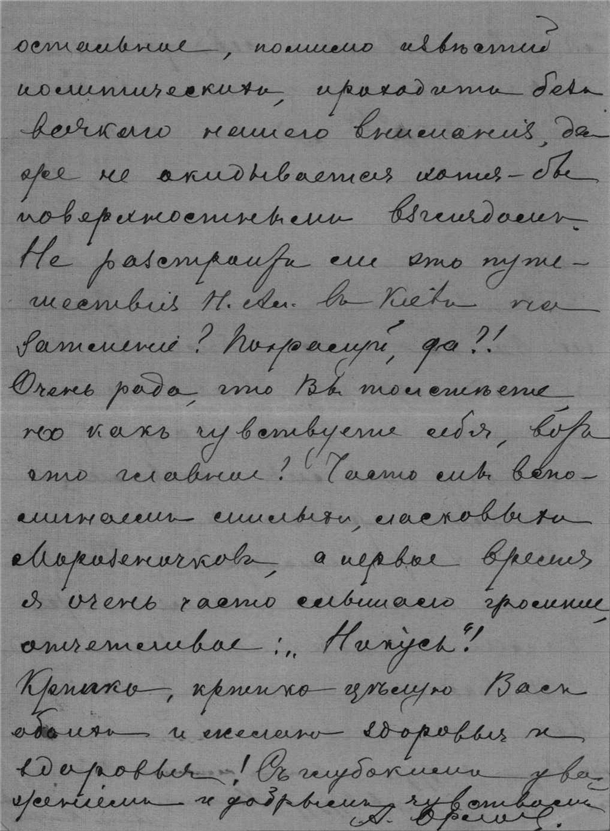 остальное, помимо извѣстій
политическихъ, проходитъ безъ
всякаго нашего вниманія, да-
же не окидывается хотя-бы
поверхностнымъ взглядомъ.
Не разстроитъ ли это путе-
шествія Н. Ал. въ Кіевъ на
затменіе? Пожалуй, да?!
Очень рада, что Вы толстѣете,
но какъ чувствуете себя, вотъ
это главное? Часто мы вспо-
минаемъ милыхъ, ласковыхъ
Морозеночковъ, а первое время
я очень часто слышала громкое,
отчетливое: „Никусь“!
Крѣпко, крѣпко цѣлую Васъ
обоихъ и желаю здоровья и
здоровья! Съ глубокимъ ува-
женіемъ и добрымъ чувствомъ
А. Орлов